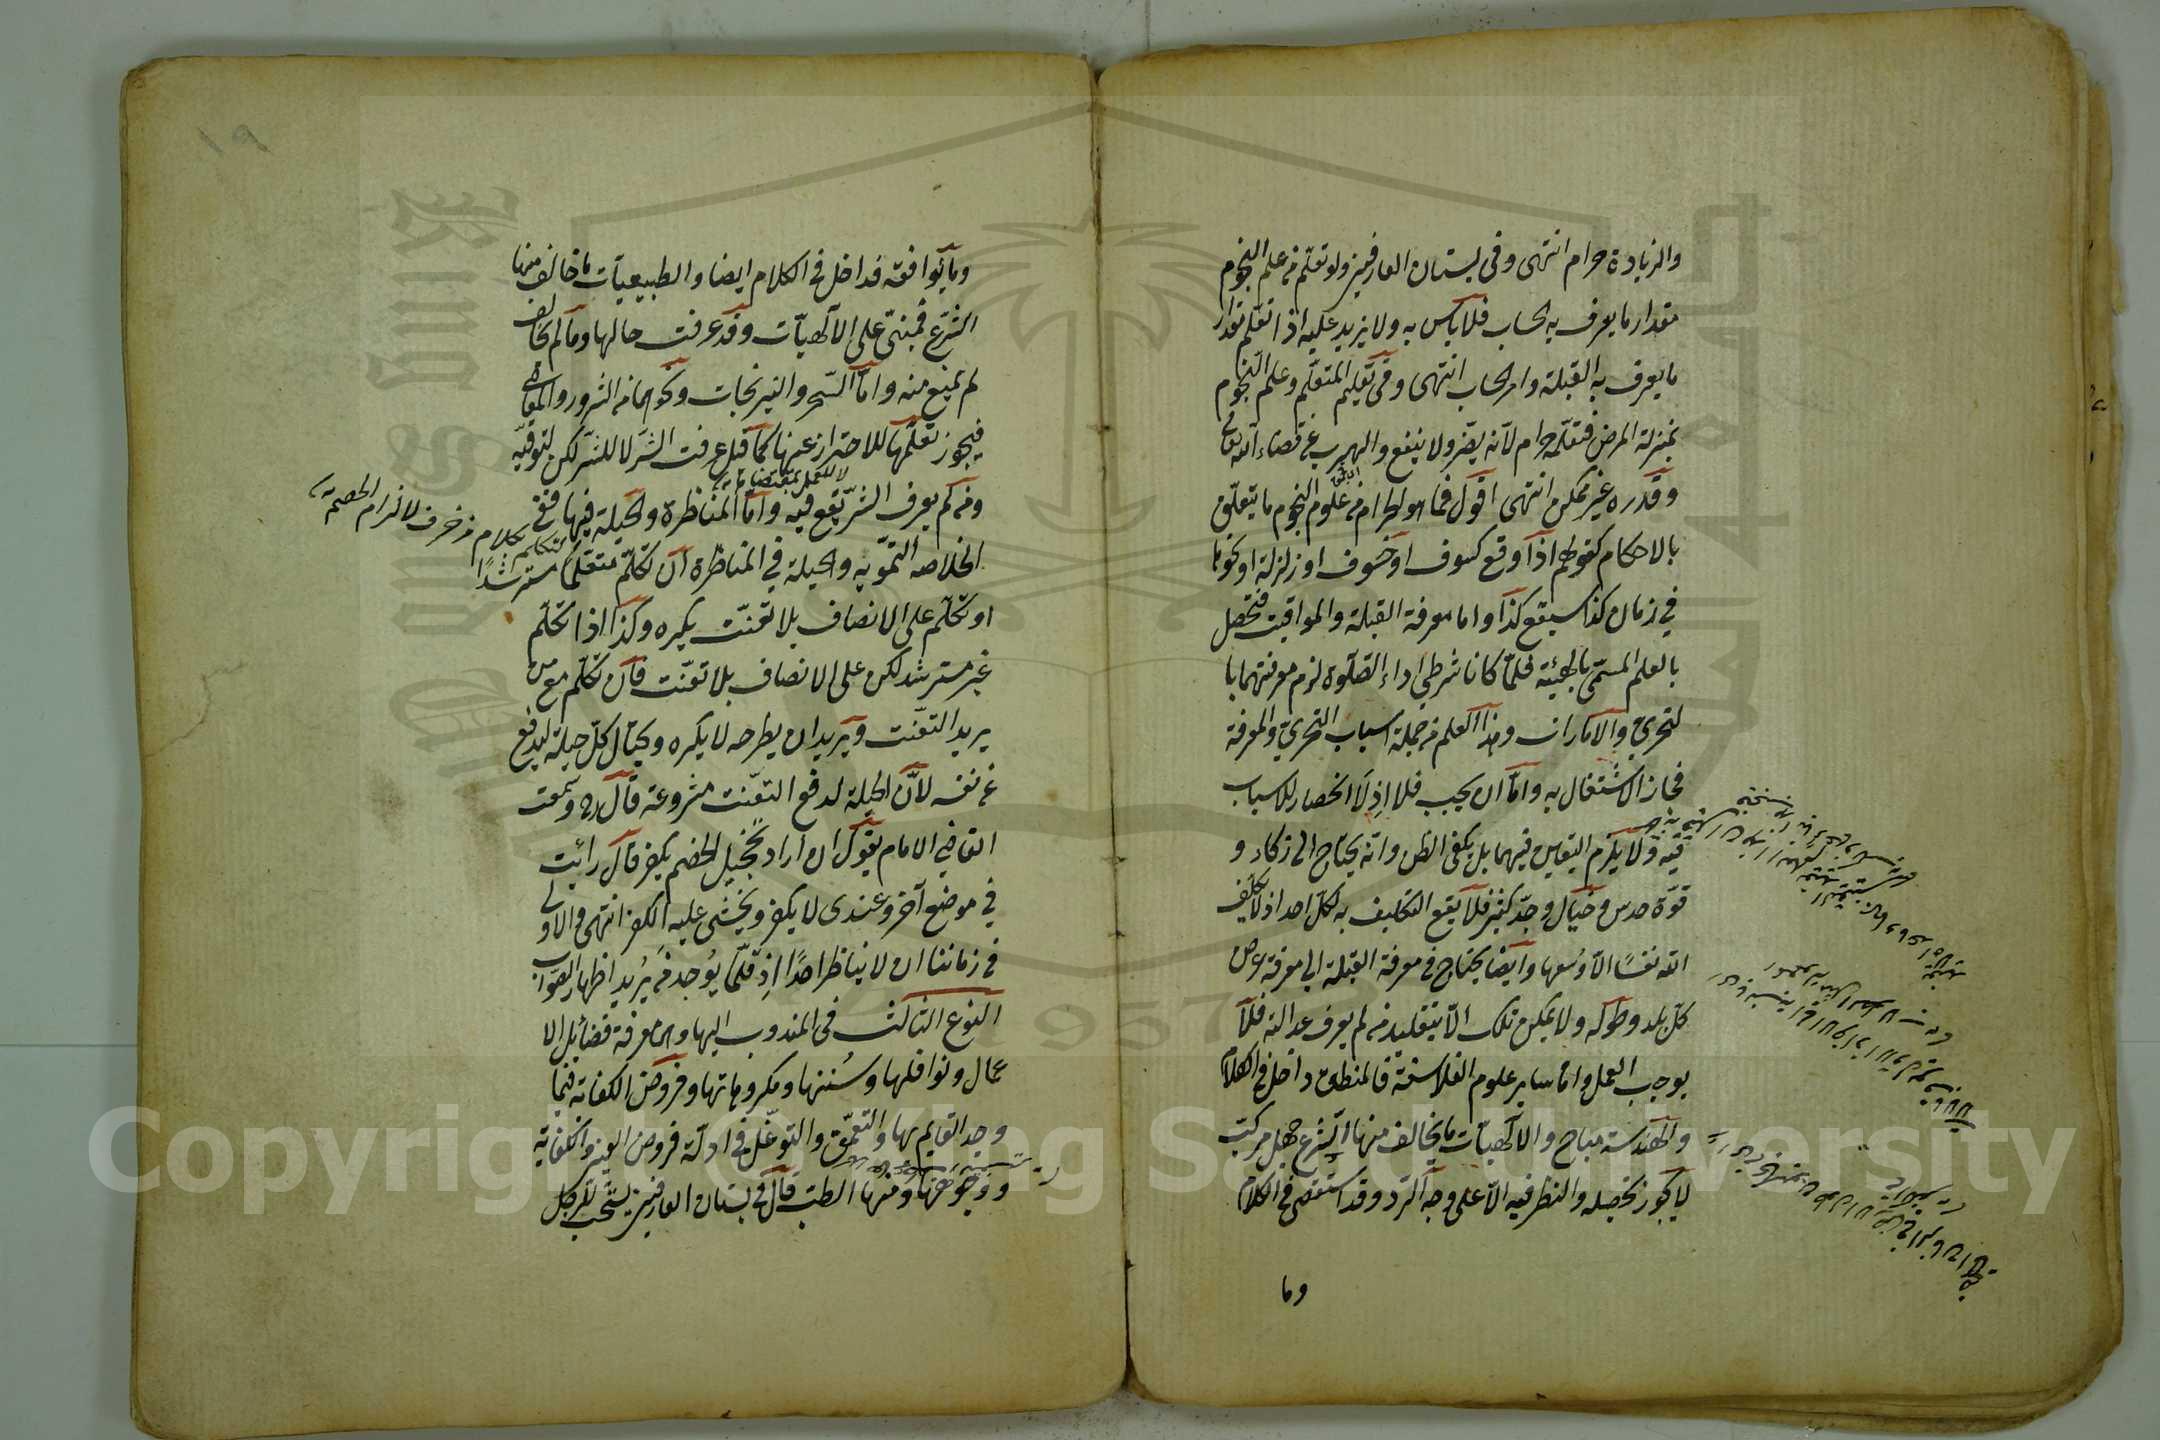 والزيادة حرام انتهى وفى بستان العارفين ولو تعلّم من علم النجوم
مقدار ما يعرف به الحساب فلا بأس به ولا يزيد عليه اذا تعلم مقدار
ما يعرف به القبلة وامر الحساب انتهى وفى تعليم المتعلّم وعلم النّجوم
بمنزلة المرض فتعلّمه حرام لانه يضرّ ولا ينفع والهرب عن قضاء الله تعالى
وقدره غير ممكن انتهى اقول فما هو الحرام من علوم النجوم ما يتعلّق
بالاحكام كقولهم اذا وقع كسوف او خسوف او زلزلة او نحوها
فى زمان كذا سيقع كذا واما معرفة القبلة والمواقيت فتحصل
بالعلم المسمّى بالهيئة فلمّا كانا شرطي اداء الصّلوة لزم معرفتهما با
لتحري والامارات وهذا العلم من جملة اسباب التحريّ والمعرفة
فجاز الاشتغال به وامّا ان يجب فلا اذ لا انحصار للاسباب
فيه ولا يلزم اليقين فيهما بل يكفى الظن وانه يحتاج الى ذكاء و
قوّة حدس وخيال وجدّ كثير فلا يقع التكليف به لكلّ احد اذ لا يكلّف
الله نفسًا الاّ وسعها وايضا يحتاج فى معرفة القبلة الى معرفة عرض
كلّ بلد وطوله ولا يمكن ذلك الاّ بتقليد من لم يعرف عدالته فلا
يوجب العمل واما ساير علوم الفلاسفة فالمنطق داخل فى الكلام
والهندسة مباح والالهيّات ما يخالف منها الشرع جهل مركب
لا يجوز تحصيله والنظر فيه الاّ على وجه الرّد وقد استقصى فى الكلام
وما
١٩
وما يوافقه فداخل فى الكلام ايضا والطبيعيات ما خالف منها
الشرع فمبنىّ على الالهيّات وقد عرفت حالها وما لم يخالف
لم يمنع منه وامّا السّحر والنيرنجات ونحوهما من الشرور والمعاصى
فيجوز تعلّمها للاحتراز عنها كما قيل عرفت الشرّ لا للشرّ لكن لتوقّيه
ومن لم يعرف الشرّ يقع فيه وامّا المناظرة والحيلة فيها ففى
لا للعمل بمقتضياته
بكلام مزخرف لالزام الخصم
الخلاصه التموّيه والحيلة فى المناظرة ان تكلّم متعلّما مسترشدًا
او تكلّم على الانصاف بلا تعنّت يكره وكذا اذا تكلّم
غير مسترشد لكن على الانصاف بلا تعنّت فان تكلّم مع من
يريد التعنّت ويريد ان يطرحه لا يكره ويحتال كلّ حيلة ليدفع
عن نفسه لانّ الحيلة لدفع التعنّت مشروعة قال رح وسمعت
القاضي الامام يقول ان اراد تخجيل الخصم يكفر قال رأيت
فى موضع آخر وعندى لا يكفر ويخشى عليه الكفر انتهى والاولى
فى زماننا ان لا يناظر احدًا اذ قلّما يوجد من يُريد اظهار الصّواب
النوع الثالث فى المندوب اليها وهى معرفة فضائل الا
عمال ونوافلها وسُننها ومكروهاتها وفروض الكفاية فيما
وجد القايم بها والتعمّق والتوغّل فى ادلّة فروض العين والكفاية
ووجوهها ومنها الطب قال فى بستان العارفين يستحب للرجل